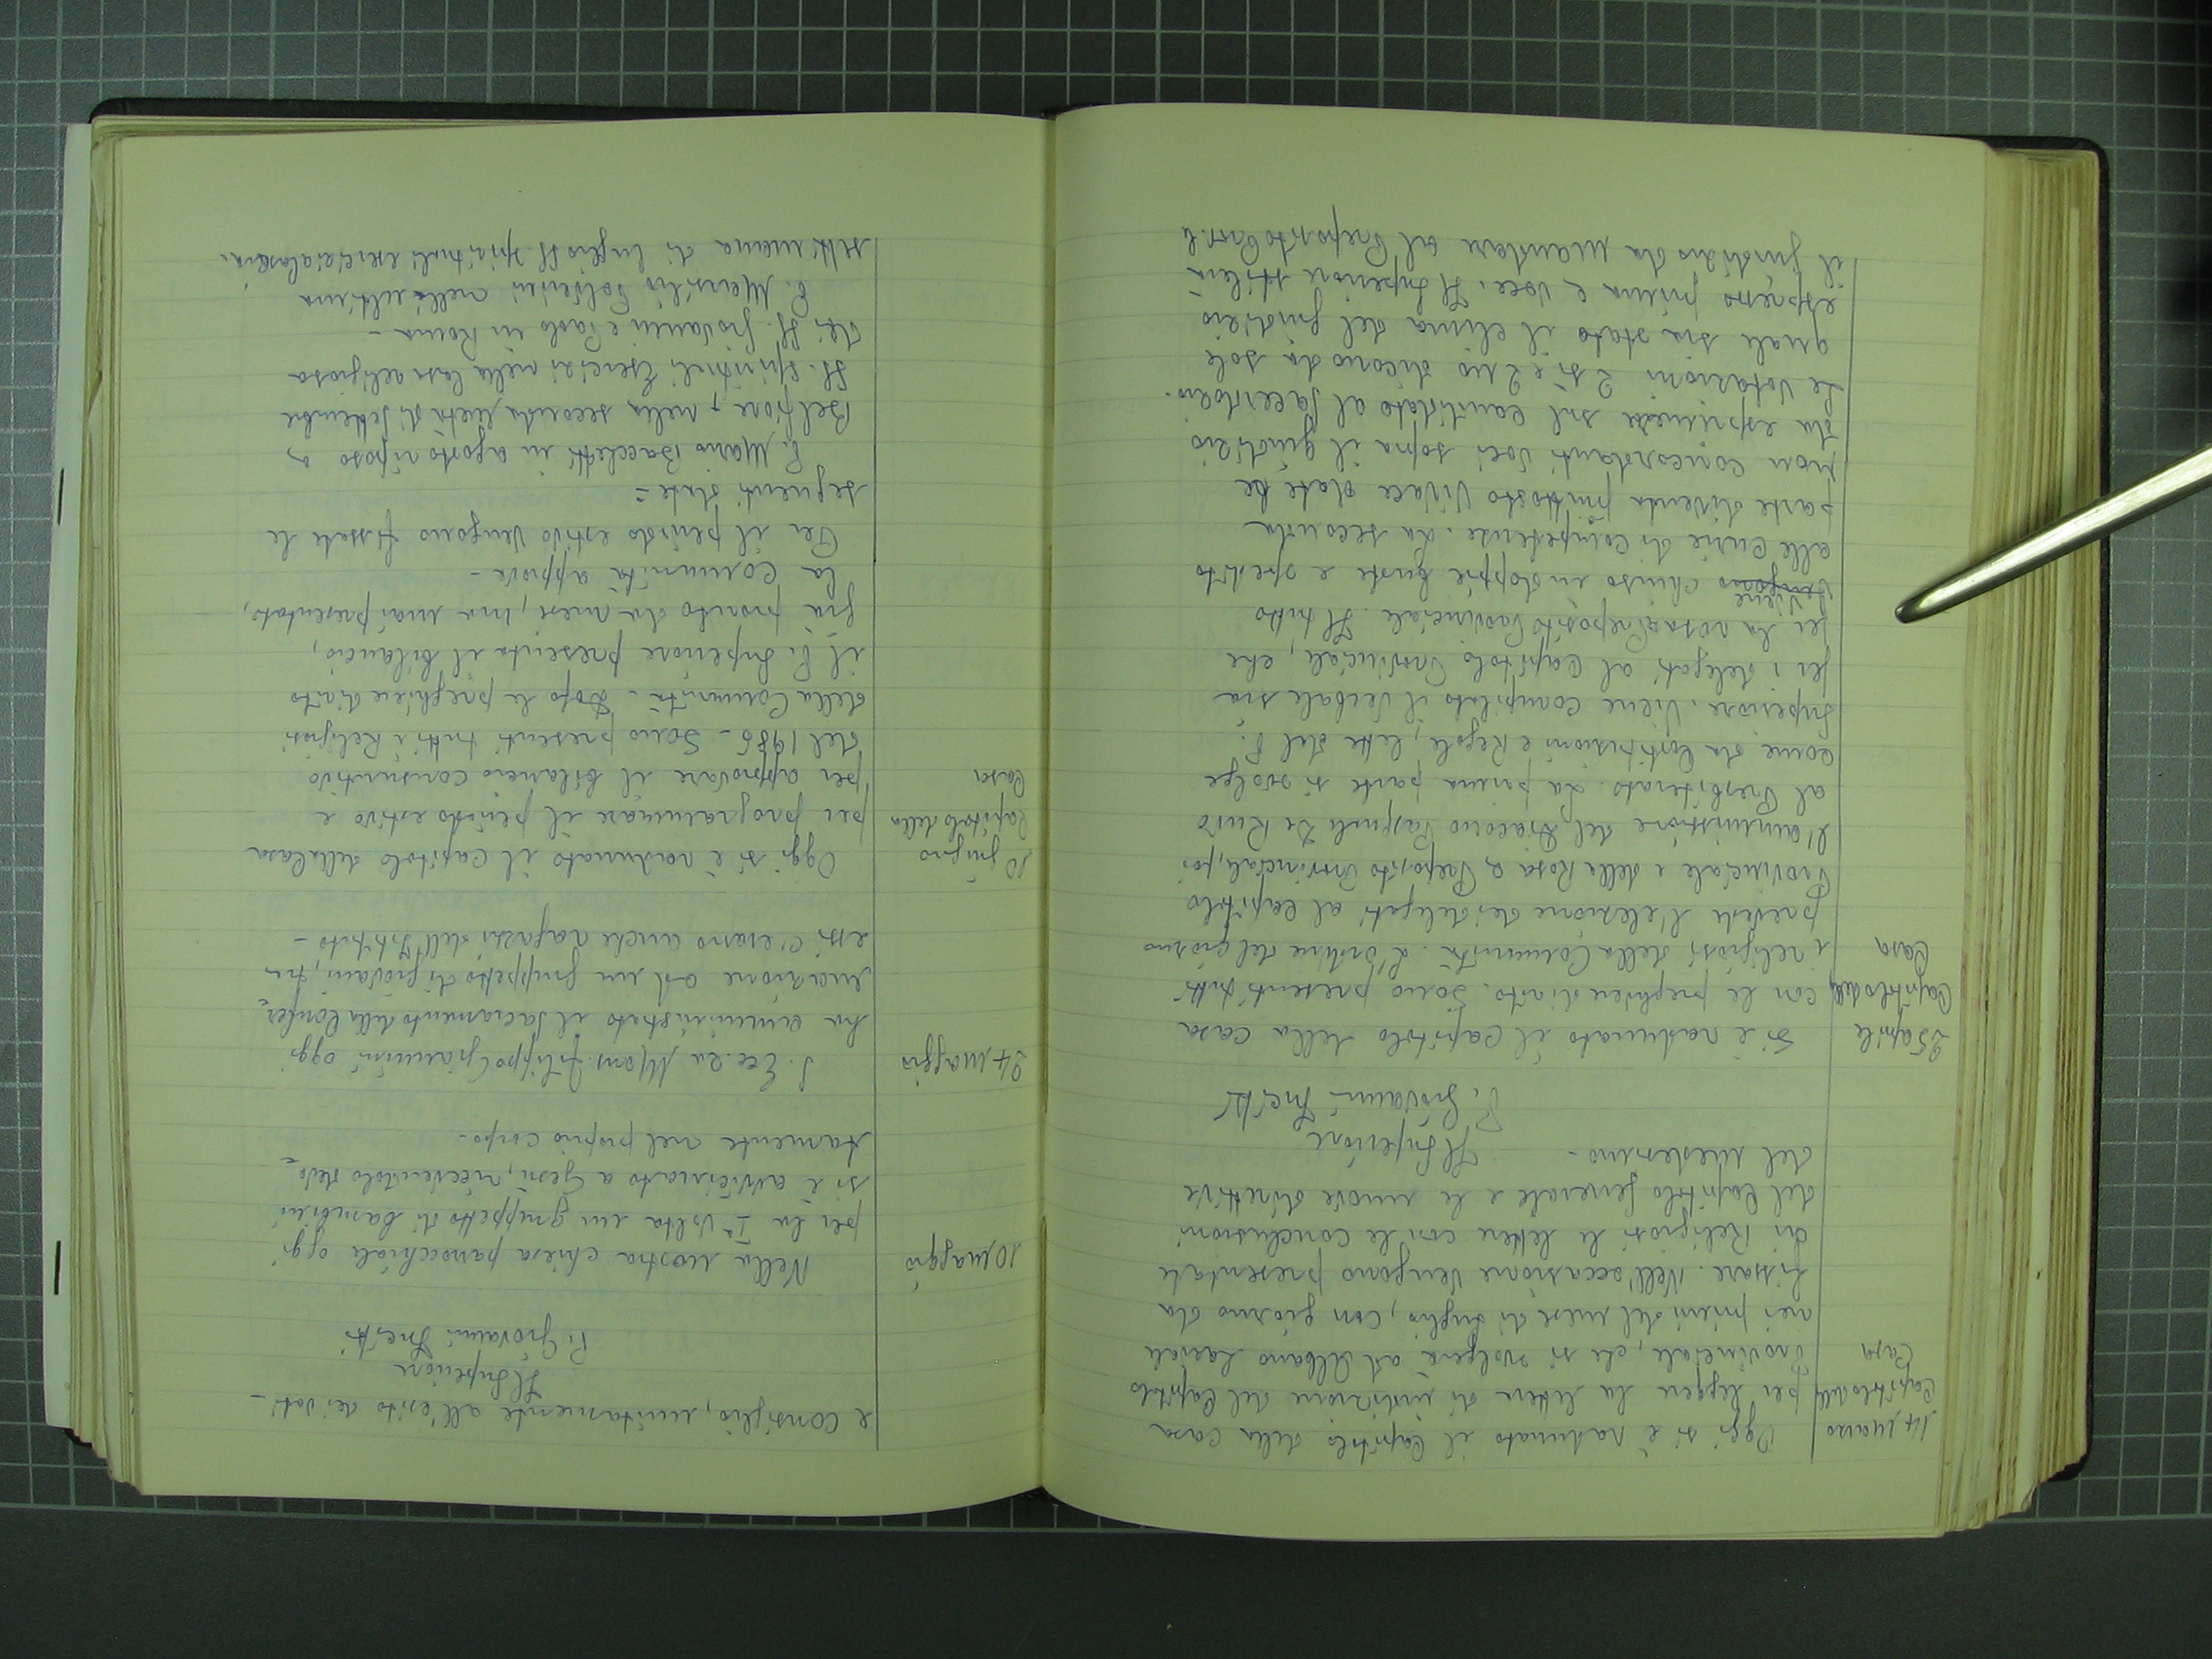 14 marzo Oggi si è radunato il Capitolo della Casa
Capitolo della per leggere la lettera di indizione del Capitolo
Casa Provinciale, che si svolgerà ad Albano Laziale
nei primi del mese di luglio, con giorno da
fissare. Nell'occasione vengono presentate
ai Religiosi le lettere con le conclusioni
del Capitolo generale e le nuove direttive
del medesimo -
Il Superiore
P. Giovanni
25 aprile Si è radunato il Capitolo della Casa
Capitolo della con le preghiere di rito. Sono presenti tutti
Casa i religiosi della Comunità. L'ordine del giorno
prevede l'elezione dei delegati al Capitolo
Provinciale e della Rosa a Preposito Provinciale, poi
l'ammissione del Diacono Pasquale De Ruvo
al Presbiterato. La prima parte si svolge
come da Costituzioni e Regole, lette dal P.
Superiore. Viene compilato il verbale sia
per i delegati al Capitolo Provinciale, che
per la rosa a Preposito Provinciale. Il tutto
viene
vengono chiuso in doppie buste e spedito
alle Curie di competenza. La seconda
parte diventa piuttosto vivace date le
non concordanti voci sopra il giudizio
da esprimere sul candidato al Sacerdozio.
Le votazioni 2 sì e 2 no dicono da sole
quale sia stato il clima del giudizio
espresso prima a voce. Il Superiore stilerà
il giudizio da mandare al Preposito Prov.le
e consiglio, unitamente all'esito dei voti -
Il Superiore
P. Giovanni
10 maggio Nella nostra chiesa parrocchiale oggi
per la Iª volta un gruppetto di bambini
si è avvicinato a Gesù, ricevendolo
tamente nel proprio corpo -
24 maggio S. Ecc.za Mons. Filippo Giannini oggi
ha amministrato il sacramento della Confer=
mazione ad un gruppetto di giovani, tra
essi c'erano anche ragazzi dell'Istituto -
10 giugno Oggi si è radunato il Capitolo della Casa
Capitolo della per programmare il periodo estivo e
Casa per approvare il bilancio consuntivo
del 1986 - Sono presenti tutti i Religiosi
della Comunità - Dopo le preghiere di rito
il P. Superiore presenta il bilancio,
già pronto da mesi, ma mai presentato,
La Comunità approva -
Per il periodo estivo vengono fissate le
seguenti date =
P. Mario Bacchetti in agosto riposo a
Belfiore, nella seconda metà di settembre
SS. Spirituali Esercizi nella Casa religiosa
dei SS. Giovanni e Paolo in Roma -
P. nella ultima
settimana di luglio SS. Spirituali esercizi